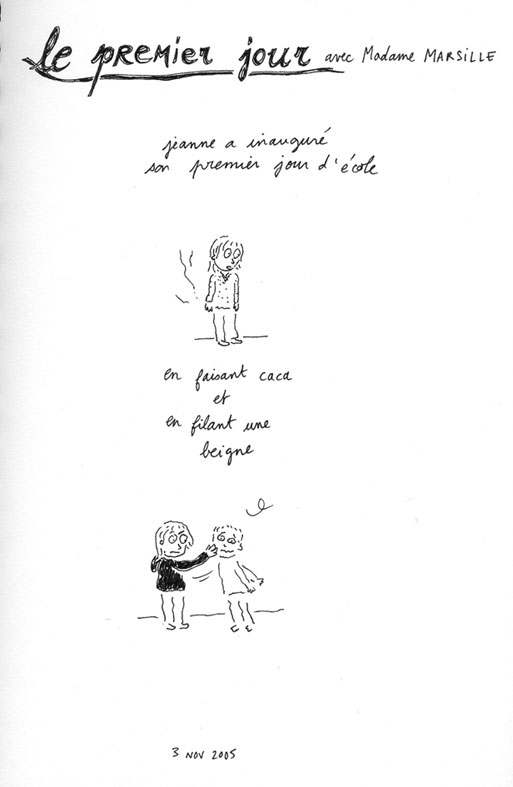 le premier jour avec Madame MARSILLE
jeanne a inauguré
son premier jour d'école
en faisant caca
et
en filant une
beigne
3 NOV 2005